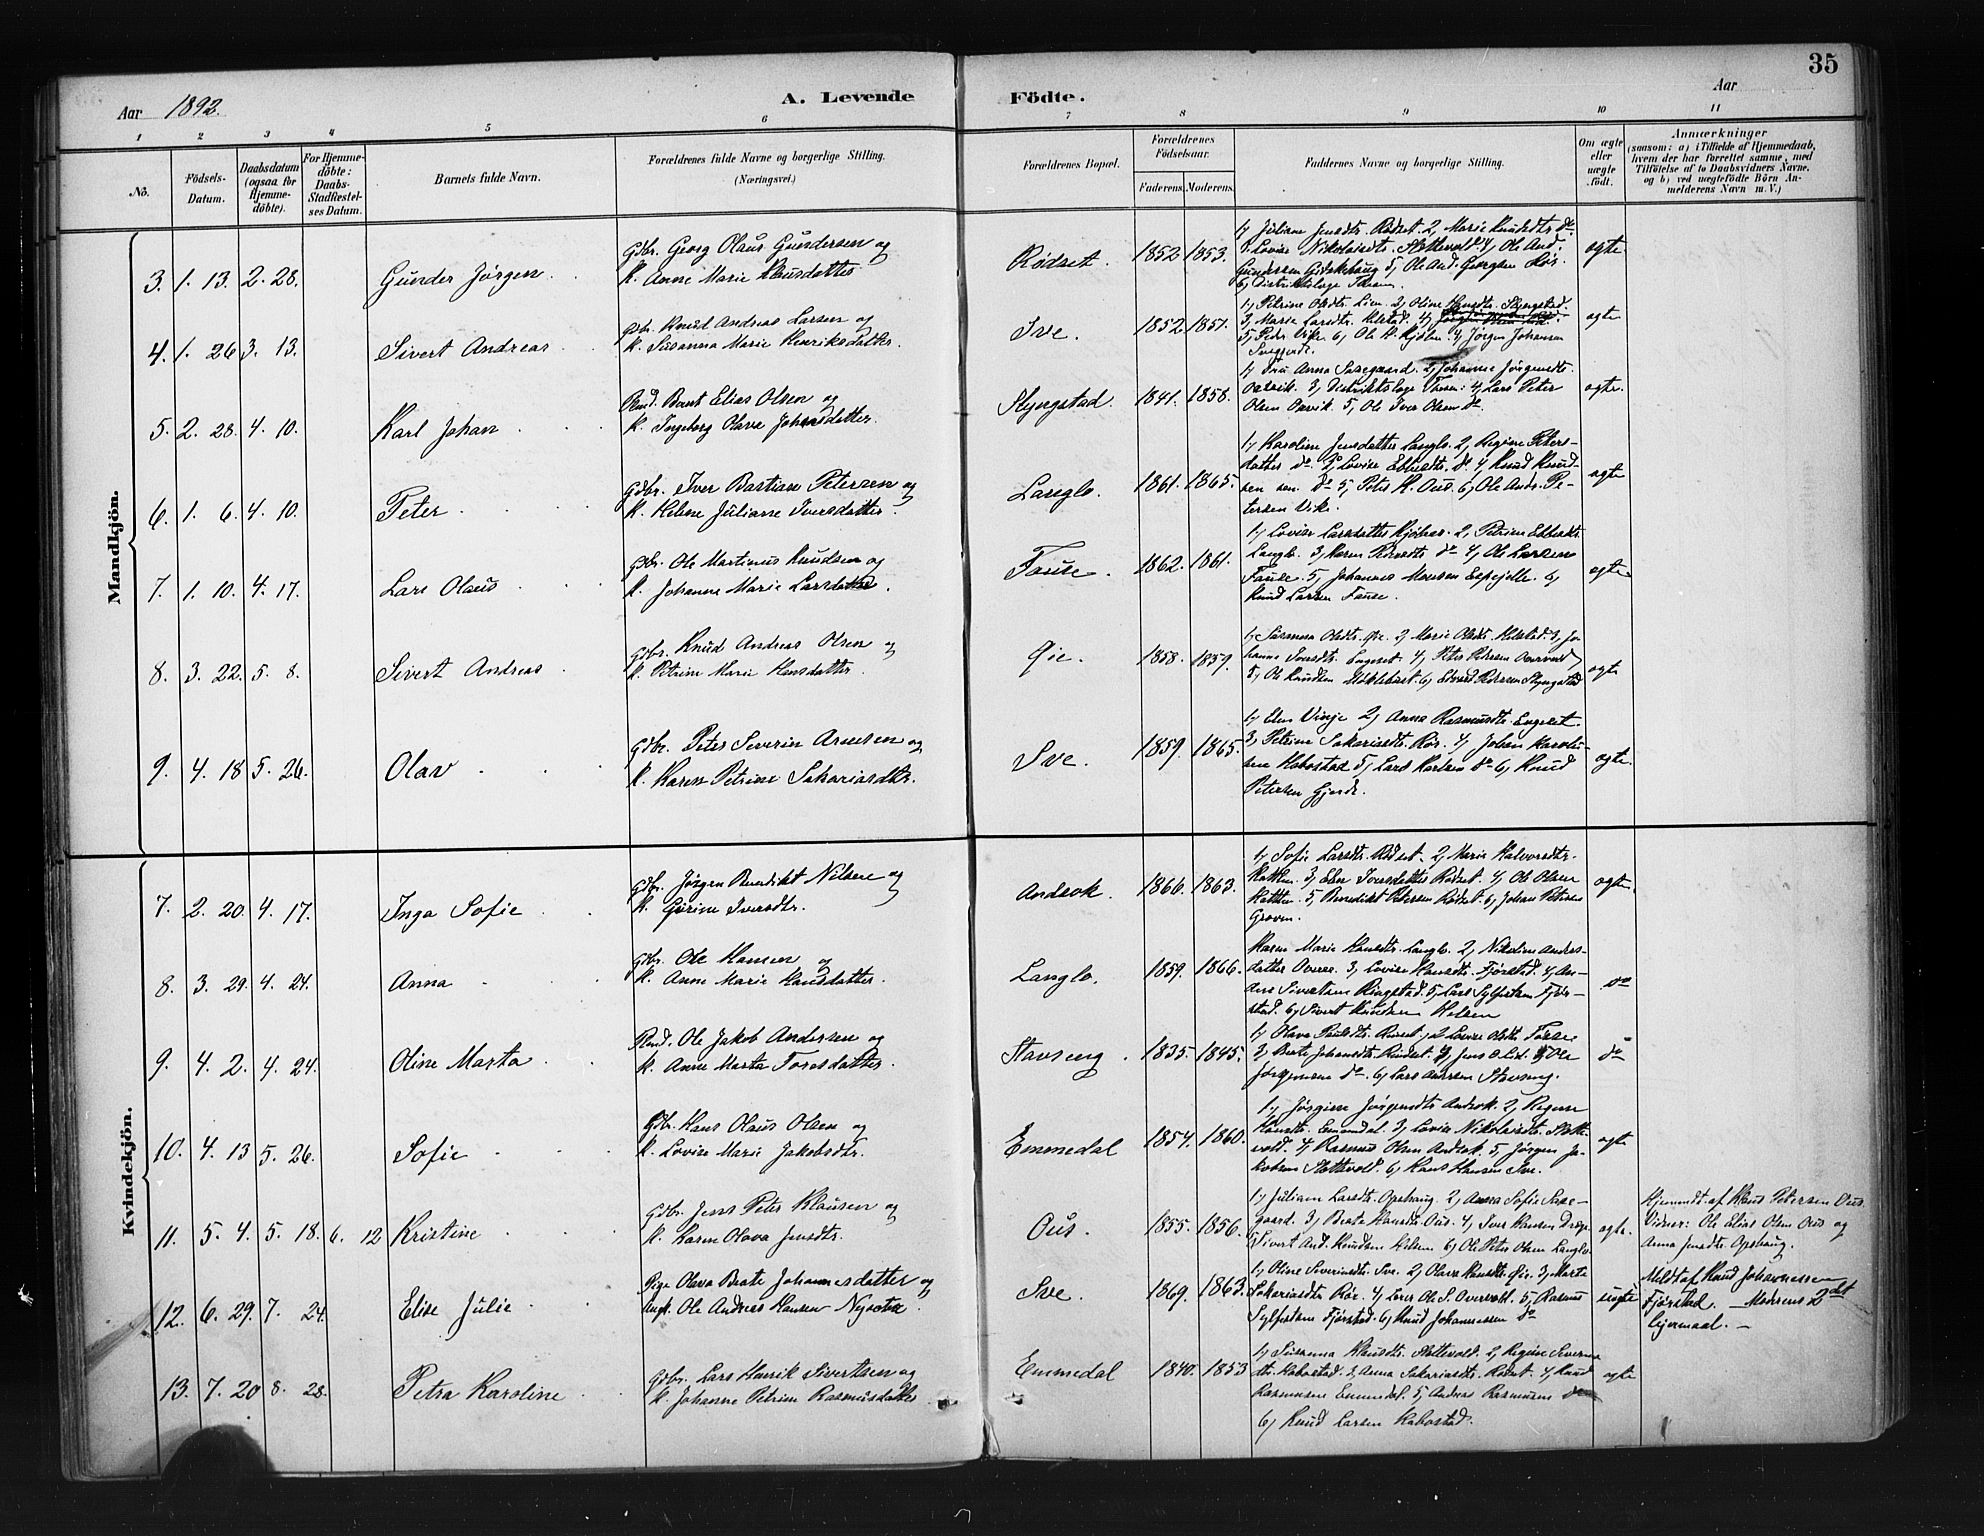 35
Aar 1892.
A. Levende Födte.
Aar
1 2 3 4 5 6 7 8 9 10 11
No.
Födsels-Datum.
Daabsdatum (ogsaa for Hjemme-döbte).
For Hjemme-döbte: Daabs-Stadfæstel-ses Datum.
Barnets fulde Navn.
Forældrenes fulde Navne og borgerlige Stilling.
(Næringsvei.)
Forældrenes Bopæl.
Forældrenes Födselsaar.
Faderens. Moderens.
Faddernes Navne og borgerlige Stilling.
Om ægte eller uægte födt.
Anmærkninger
(saasom: a) i Tilfælde af Hjemmedaab,
hvem der har forrettet samme, med
Tilföielse af to Daabsvidners Navne,
og b) ved uægtefödte Börn An-
melderens Navn m. V.)
Mandkjön.
3. 1. 13. 2. 28. Gunder Jørgen
Gdbr. Georg Olaus Gundersen og
K. Anne Marie Klausdatter
Rødset. 1852 1853.
1, Juliane Jensdtr. Rødset. 2, Marie Knudsdtr. do.
3, Lovise Nikolaisdtr. Slettevold 4, Ole And.
Gundersen Gidskehaug 5, Ole And. Georgsen Rør.
6, Distriktslæge Thesen.
ægte
4. 1. 26 3. 13. Sivert Andreas
Gdbr. Knud Andreas Larsen og
K. Susanna Marie Henriksdatter.
Sve. 1852 1857.
1, Petrine Olsdtr. Lien. 2, Oline Hansdtr. Skjengstad
3, Marte Larsdtr. Helstad. 4,
5, Peder Vike. 6, Ole K. Kjølsen. 7, Jørgen Johansen
Svegjerde.
ægte
5. 2. 28. 4. 10. Karl Johan
Rmd. Bernt Elias Olsen og
K. Ingeborg Olave Johnsdatter.
Skjengstad. 1841. 1858.
1, Fru Anna Saxegaard. 2, Johanne Jørgensdtr.
Oxevik. 3, Distriktslæge Thesen: 4, Lars Peter
Olsen Oxevik. 5, Ole Iver Olsen do.
ægte.
6. 1. 6. 4. 10. Peter
Gdbr. Iver Bastian Petersen og
K. Helene Juliane Iversdatter.
Langlo. 1861. 1865.
1, Karoline Jensdatter Langlo. 2, Regine Peters-
datter do. 3, Lovise Ebbesdtr. do. 4, Knud Knud-
sen sen. do 5, Peter H. Ous. 6, Ole Andr. Pe-
tersen Vike.
ægte
7. 1. 10. 4. 17. Lars Olaus
Gdbr. Ole Martinus Knudsen og
K. Johanne Marie Larsdatter.
Fause. 1862. 1861.
1, Lovise Larsdatter Kjølsen. 2, Petrine Ebbesdtr.
Langlo. 3, Karen Pedersdtr. do 4, Ole Larsen
Fause. 5, Johannes Monsen Espejelle. 6,
Knud Larsen Fause.
ægte
8. 3. 22. 5. 8. Sivert Andreas
Gdbr. Knud Andreas Olsen og
K. Petrine Marie Hansdatter.
Øie. 1858. 1859.
1, Susanna Olsdtr. Øie. 2, Marie Olsdtr. Helstad 3, Jo-
hanne Iversdtr. Engeset. 4, Peter Petersen Overvold
5, Ole Knudsen Støklebust. 6, Edvard Pedersen Skjengstad
ægte
9. 4. 18 5. 26. Olav
Gdbr. Peter Severin Arnesen og
K. Karen Petrine Sakariasdtr.
Sve. 1859. 1865.
1, Elen Vinje 2, Anna Rasmusdtr. Engeset.
3, Petrine Sakariasdtr. Rør. 4, Johan Karoliu-
sen Habostad 5, Lars Karlsen do 6, Knud
Petersen Gjerde.
ægte.
Kvindekjön.
7. 2. 20. 4. 17. Inga Sofie
Gdbr. Jørgen Benedikt Nilsen og
K. Gurine Iversdtr.
Andsok. 1866. 1863.
1, Sofie Larsdtr. Rødset. 2, Marie Halvorsdtr.
Hatten. 3, Else Iversdatter Rødset. 4, Ole Olsen
Hatten. 5, Benedikt Petersen Rødset. 6, Johan Petersen
Groven.
ægte.
8. 3. 29. 4. 24. Anna
Gdbr. Ole Hansen og
K. Anne Marie Hansdatter.
Langlo. 1859. 1866.
Karen Marie Hansdtr. Langlo. 2, Nikoline Anders-
datter Overaa. 3, Lovise Hansdtr. Fjørstad. 4, An-
ders Sivertsen Ringstad. 5, Lars Sylfestsen Fjør-
stad. 6, Sivert Knudsen Helsem
do
9. 4. 2. 4. 24. Oline Marta
Rmd. Ole Jakob Andersen og
K. Anne Marta Toresdatter.
Stavseng. 1835. 1845.
1, Olava Paulsdtr. Rindset. 2 Lovise Olsdtr. Fause
3, Beate Johansdtr. Rindset. 4, Jens O. Lid. 5, Ole
Jørgensen do. 6, Lars Andersen Stavseng.
do
10. 4. 13 5. 26. Sofie
Gdbr. Hans Olaus Olsen og
K. Lovise Marie Jakobsdtr.
Emmedal 1854. 1860.
1, Jørgine Jørgensdtr. Andsok. 2, Regine
Hansdtr. Emmedal. 3, Lovise Nikolaisdtr. Slette-
vold. 4, Rasmus Olsen Andsok. 5, Jørgen Ja-
kobsen Slettevold. 6, Hans Hansen Sve.
ægte
11. 5. 4. 5. 18. 6. 12 Kristine
Gdbr. Jens Peter Klausen og
K. Karen Olava Jensdtr.
Ous. 1855. 1856.
1, Juliane Larsdtr. Opshaug. 2, Anna Sofie Saxe-
gaard. 3, Beate Hansdtr. Ous. 4, Iver Hansen Drag.
5, Sivert And. Knudsen Helsem 6, Ole Peter Olsen Langlo
ægte.
Hjemmedt. af Klaus Petersen Ous.
Vidner: Ole Elias Olsen Ous og
Anna Jensdtr. Opshaug.
12. 6. 29. 7. 24. Elise Julie
Pige Olava Beate Johannesdatter og
Ungk. Ole Andreas Hansen Nysæter
Sve. 1869. 1863.
1, Oline Severinsdtr. Sve. 2, Olava Hansdtr. Øie. 3, Marta
Sakariasdtr. Rør. 4, Lærer Ole S. Overvoll. 5, Rasmus
Sylfestsen Fjørstad. 6, Knud Johannessen do
uægte
Meldt af Knud Johannessen
Fjørstad. — Moderens 2det
Leiermaal. —
13. 7. 20 8. 28. Petra Karoline
Gdbr. Lars Henrik Sivertsen og
K. Johanne Petrine Rasmusdatter.
Emmedal 1840. 1853
1, Susanna Klausdtr. Slettevold. 2, Regine Severins-
dtr. Habostad. 3, Anna Sakariasdtr. Rødset. 4, Knud
Rasmussen Emmedal. 5, Andreas Rasmussen do
6, Knud Larsen Habostad.
ægte